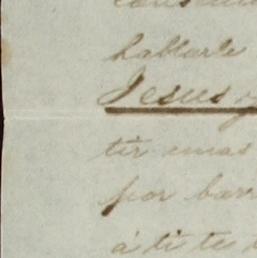 hablarle
Jesus y
tir mas
por barr
á ti te